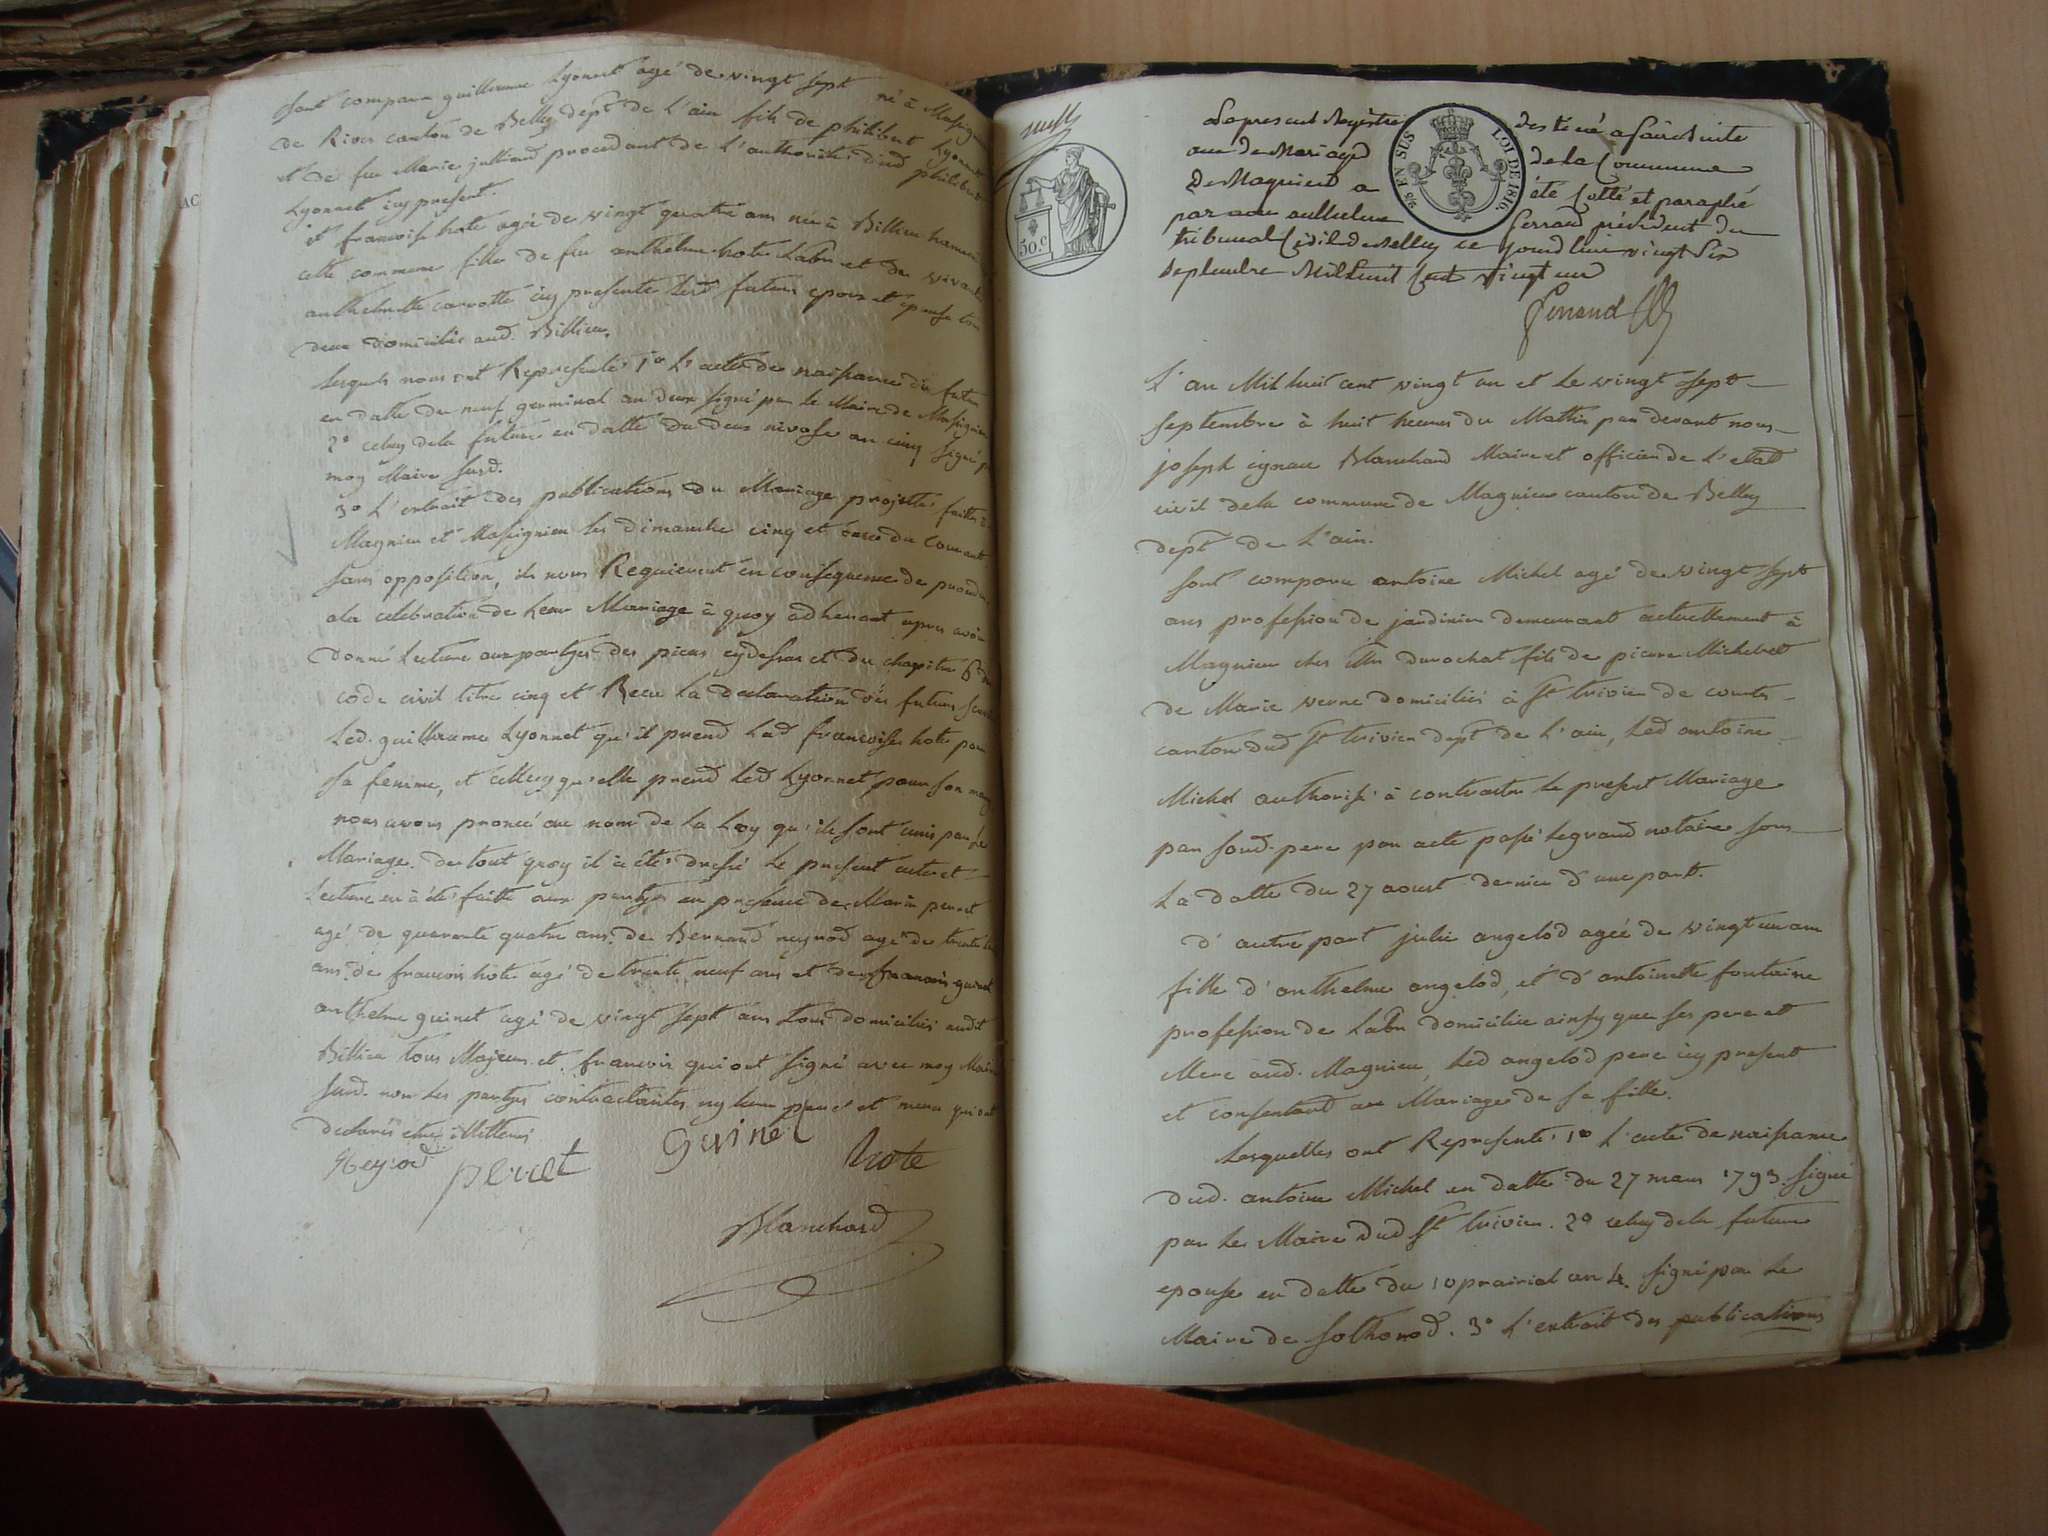 sont comparu guillaume Lyonnet agé de vingt sept né à Massignieu
de Rives canton de Belley dept de L'ain fils de philibert Lyonnet
et de feu Marie julliand procedant de L'authorité dud philibert
Lyonnet icy present.
et francoise hote agée de vingt quatre ans née à Billieu hameau
cette commune fille de feu anthelme hote Labr et de vivante
anthelmette carrotte icy presente lesd futurs epoux et epouse tous
deux domiciliés aud. Billieu,
Lesquels nous ont Representé 1o L'acte de naissance du futur
en datte du neuf germinal an deux signé par le Maire de Massignieu
2o celuy dela future en datte du deux nivose an cinq signé p
moy Maire susd.
3o L'extrait des publications du Mariage projetté faittes à
Magnieu et Massignieu les dimanche cinq et onze du courant
sans opposition, ils nous Requierent en consequence de proceder
ala celebration de Leur Mariage à quoy adherant apres avoir
donné Lecture aux partyes des pieces cydessus et du chapitre 6 du
code civil titre cinq et Recu la declaration des futurs
Led. guillaume Lyonnet qu'il prend Lad francoise hote pour
sa femme, et cellecy qu'elle prend led Lyonnet pour son mary
nous avons prononcé au nom de La Loy qu'ils sont unis par Le
Mariage. de tout quoy il a été dressé Le present acte et
Lecture en à été faitte aux partyes en presence de Marin perret
agé de quarante quatre ans. de Bernard neyrod agé de trente
ans. de francois hote agé de trente neuf ans et de francois guinet
anthelme guinet agé de vingt sept ans tous domiciliés audit
Billieu tous Majeurs et francois qui ont signé avec moy Maire
susd. non Les partyes contractantes ny leur pere et mere qui ont
declaré etre illitterés
Neyrod perret Guinet hote
Blanchard
neuf
30.c
2/10 EN SUS
LOI DE 1816.
Le present Registre destiné a faire suite
aux de Mariage de la Commune
De Magnieu a été Cotté et paraphé
par nous anthelme Ferrand président du
tribunal Civil de Belley ce jourd'hui vingt six
septembre Mil huit Cent vingt un
Ferrand
L'an Mil huit cent vingt un et Le vingt sept
septembre à huit heures du Mattin par devant nous
joseph ignace Blanchard Maire et officier de L'etat
civil dela commune de Magnieu canton de Belley
dept de L'ain.
sont comparu antoine Michel agé de vingt sept
ans profession de jardinier demeurant actuellement à
Magnieu ches Mr durochat fils de pierre Michel et
de Marie verne domiciliés à St trivier de courtes
canton dud St trivier dept de L'ain, Led antoine
Michel authorisé à contracter le present Mariage
par sond. pere par acte passé Legrand notaire sous
La datte du 27 aoust dernier d'une part.
d'autre part julie angelod agée de vingt un ans
fille d'anthelme angelod, et d'antoinette fontaine
profession de Labr domiciliée ainsy que ses pere et
Mere aud. Magnieu, Led angelod pere icy present
et consentant au Mariage de sa fille.
Lesquelles ont Representé 1o L'acte de naissance
dud. antoine Michel en datte du 27 mars 1793 signé
par Le Maire dud St trivier. 2o celuy dela future
epouse en datte du 10 prairial an 4. signé par Le
Maire de Sothonod. 3o L'extrait des publications